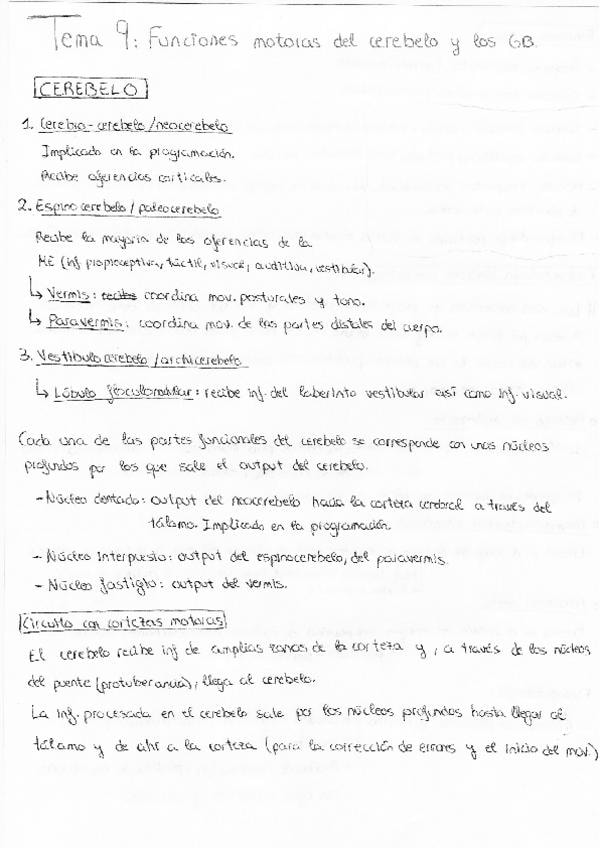 Tema 9: Funciones motoras del cerebelo y los GB.
CEREBELO
1. Cerebro-cerebelo/neocerebelo
Implicado en la programación.
Recibe aferencias corticales.
2. Espinocerebelo/paleocerebelo
Recibe la mayoría de las aferencias de la
ME (inf propioceptiva, táctil, visual, auditiva, vestibular).
↳ Vermis: recibe coordina mov. posturales y tono.
↳ Paravermis: coordina mov. de las partes distales del cuerpo.
3. Vestibulocerebelo/archicerebelo
↳ Lóbulo floculonodular: recibe inf. del laberinto vestibular así como inf. visual.
Cada una de las partes funcionales del cerebelo se corresponde con unos núcleos
profundos por los que sale el output del cerebelo.
- Núcleo dentado: output del neocerebelo hacia la corteza cerebral a través del
tálamo. Implicado en la programación
- Núcleo Interpuesto: output del espinocerebelo, del paravermis.
- Núcleo fastigio: output del vermis.
Circuito con cortezas motoras
El cerebelo recibe inf de amplias zonas de la corteza y, a través de los núcleos
del puente (protuberancia), llega al cerebelo.
La inf. procesada en el cerebelo sale por los núcleos profundos hasta llegar al
tálamo y de ahí a la corteza (para la corrección de errores y el inicio del mov.)